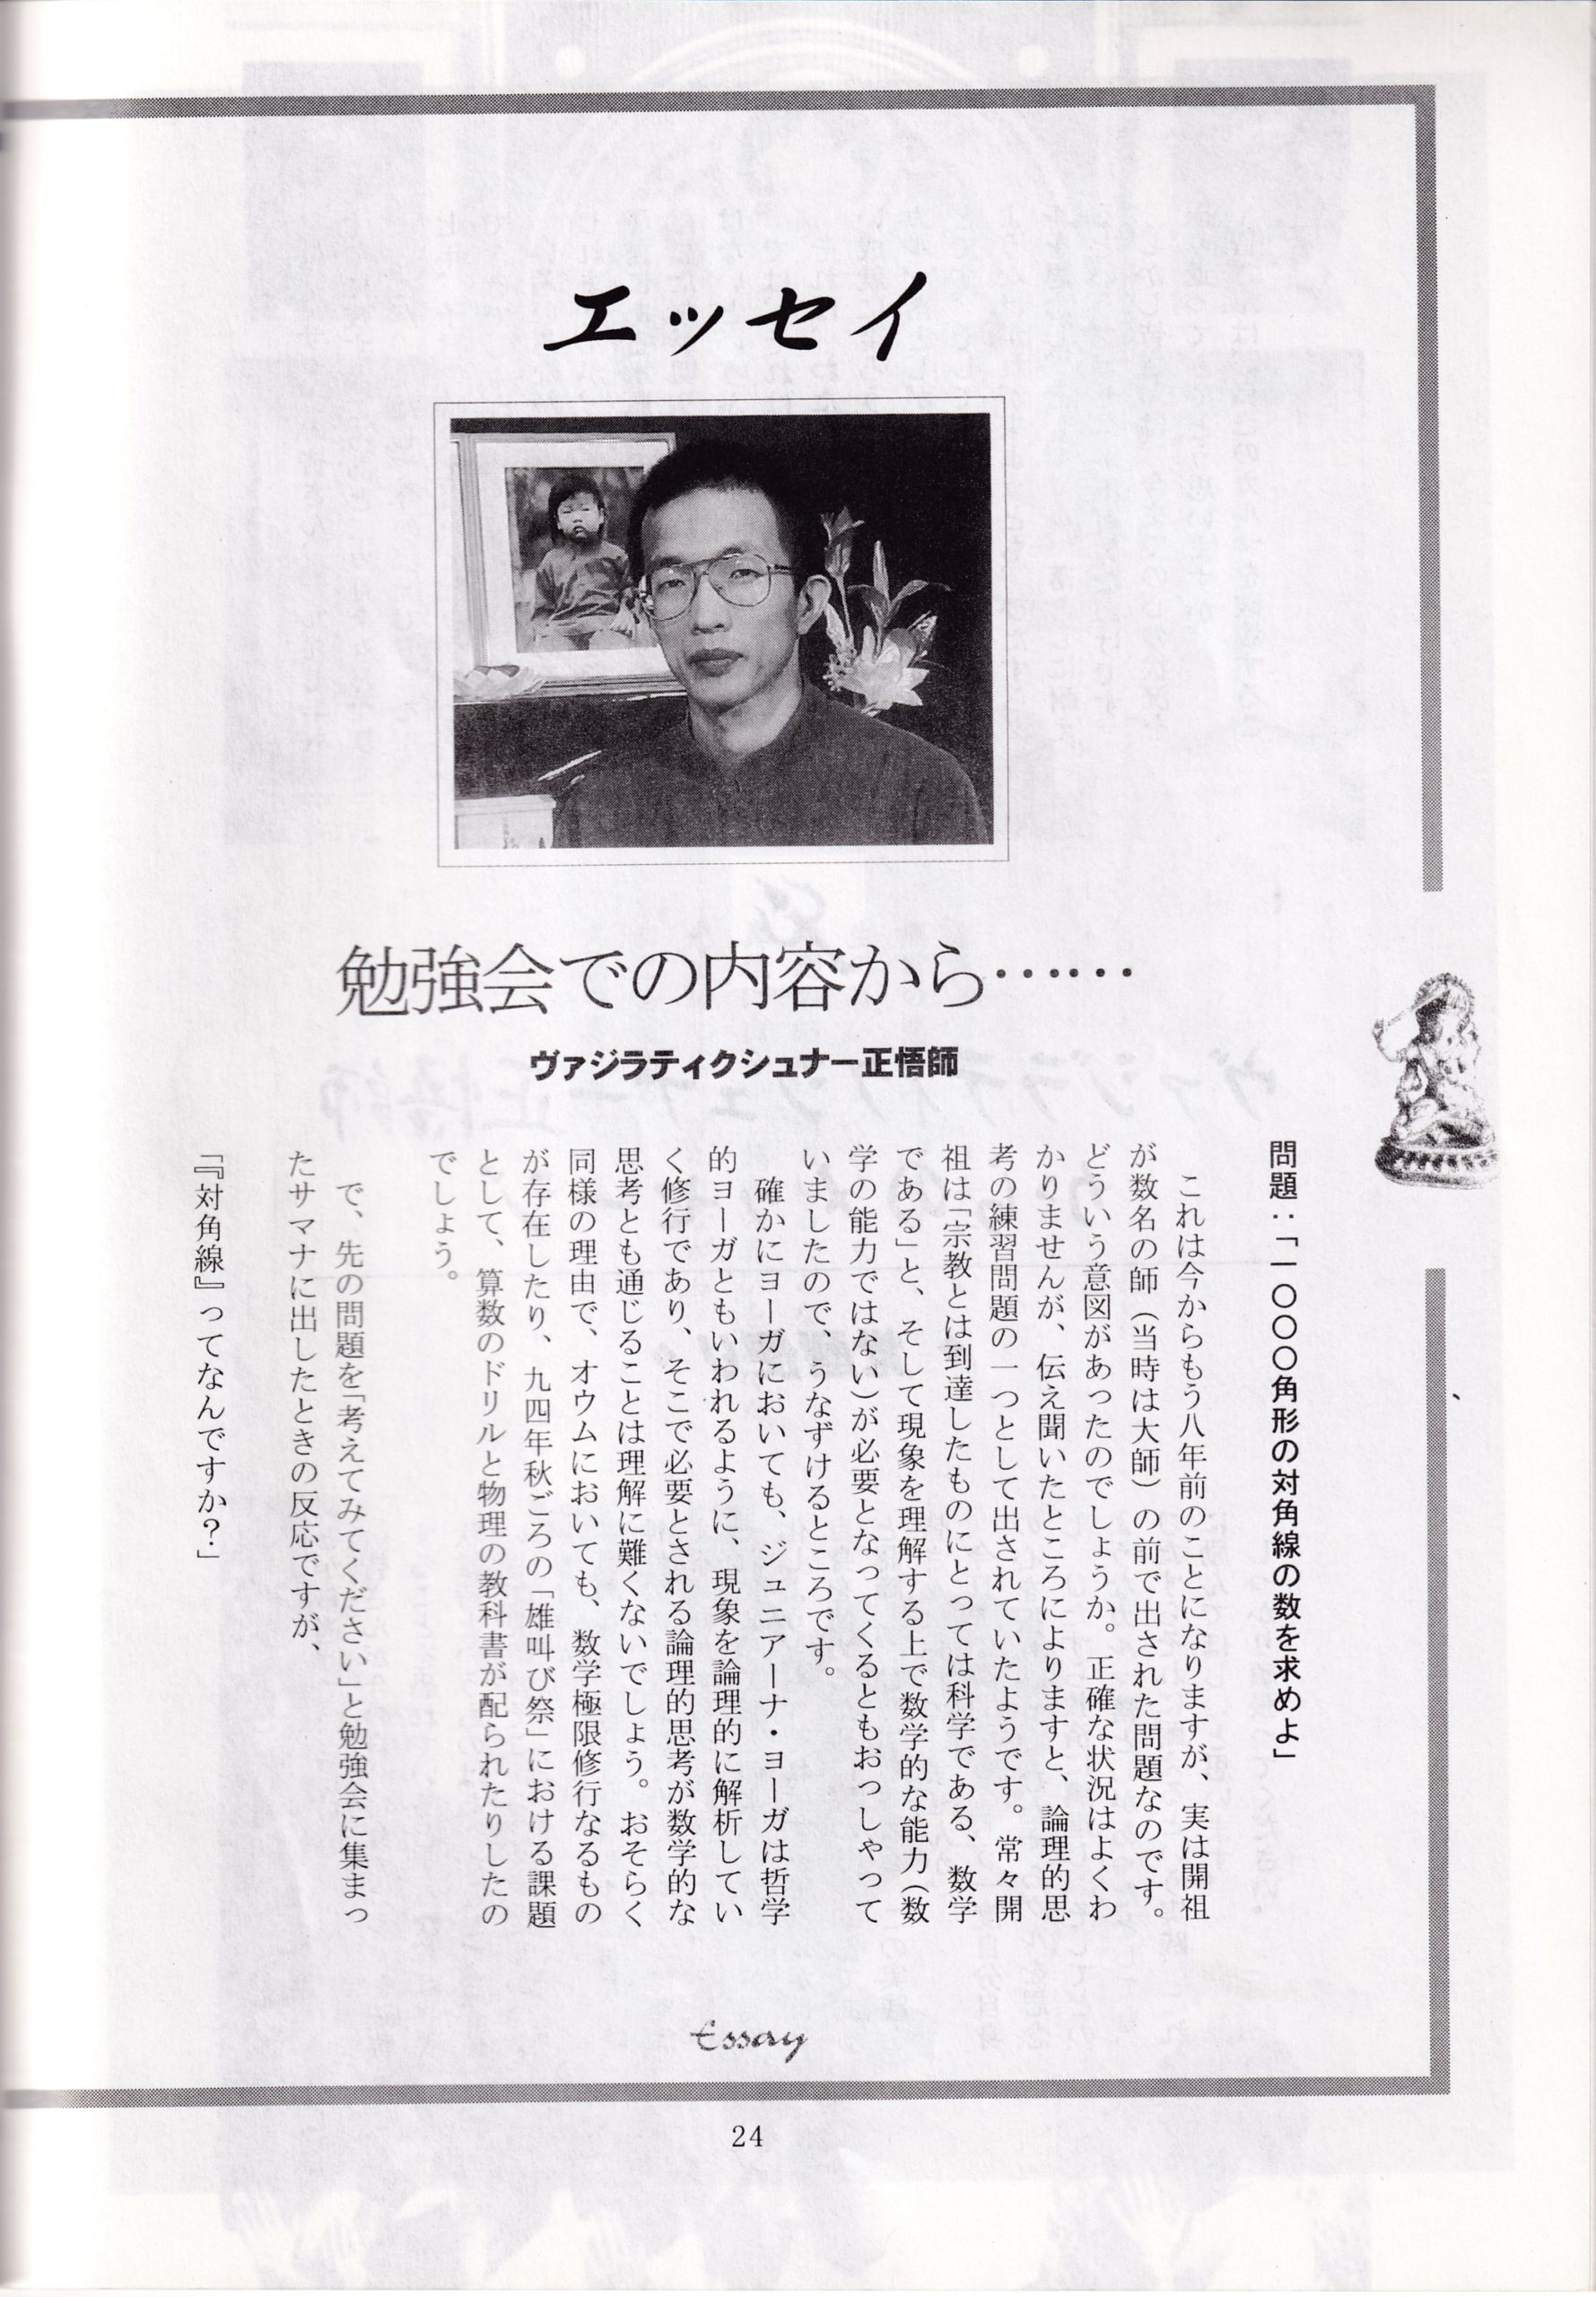 エッセイ
勉強会での内容から……
ヴァジラティクシュナー正悟師
問題：「一〇〇〇角形の対角線の数を求めよ」
これは今からもう八年前のことになりますが、実は開祖
が数名の師（当時は大師）の前で出された問題なのです。
どういう意図があったのでしょうか。正確な状況はよくわ
かりませんが、伝え聞いたところによりますと、論理的思
考の練習問題の一つとして出されていたようです。常々開
祖は「宗教とは到達したものにとっては科学である、数学
である」と、そして現象を理解する上で数学的な能力（数
学の能力ではない）が必要となってくるともおっしゃって
いましたので、うなずけるところです。
確かにヨーガにおいても、ジュニアーナ・ヨーガは哲学
的ヨーガともいわれるように、現象を論理的に解析してい
く修行であり、そこで必要とされる論理的思考が数学的な
思考とも通じることは理解に難くないでしょう。おそらく
同様の理由で、オウムにおいても、数学極限修行なるもの
が存在したり、九四年秋ごろの「雄叫び祭」における課題
として、算数のドリルと物理の教科書が配られたりしたの
でしょう。
で、先の問題を「考えてみてください」と勉強会に集まっ
たサマナに出したときの反応ですが、
「『対角線』ってなんですか？」
Essay
24